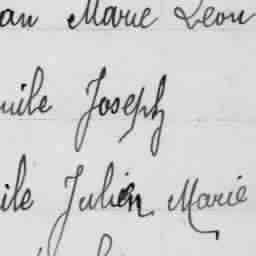 an Marie Léon
mile Joseph
ile Julien Marie